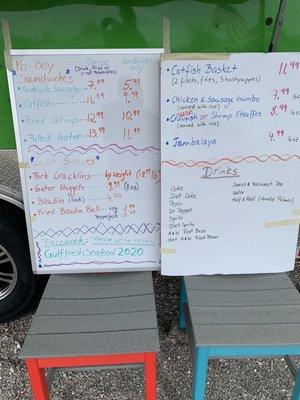 Po-Boy Sandwiches
Combo
(Drink, Fries or
Sandwich
only
Andouille Sausage 7.99 5.99
Catfish 11.99 9.99
Fried Shrimps 12.99 10.99
Pulled Gator 13.99 11.99
Snacks
Pork Cracklins by weight
Gator Nuggets 9.99 (8oz)
Boudin (link) 4.50
Fried Boudin Ball reg
Pepperjack
Facebook: Please write review
Gulffreshseafood 2020
• Catfish Basket 11.99
(2 filets, fries, 3 hushpuppies)
• Chicken & Sausage Gumbo 7.99 16oz
(served with rice)
or Shrimp Etouffee 8.99 16oz
(served with rice)
• Jambalaya 4.99 16oz
Drinks
Coke
Diet Coke
Pepsi
Dr Pepper
Sprite
Diet Sprite
A&W Root Beer
Diet A&W Root Beer
Sweet & UnSweet Tea
Water
Half & Half (Arnold Palmer)